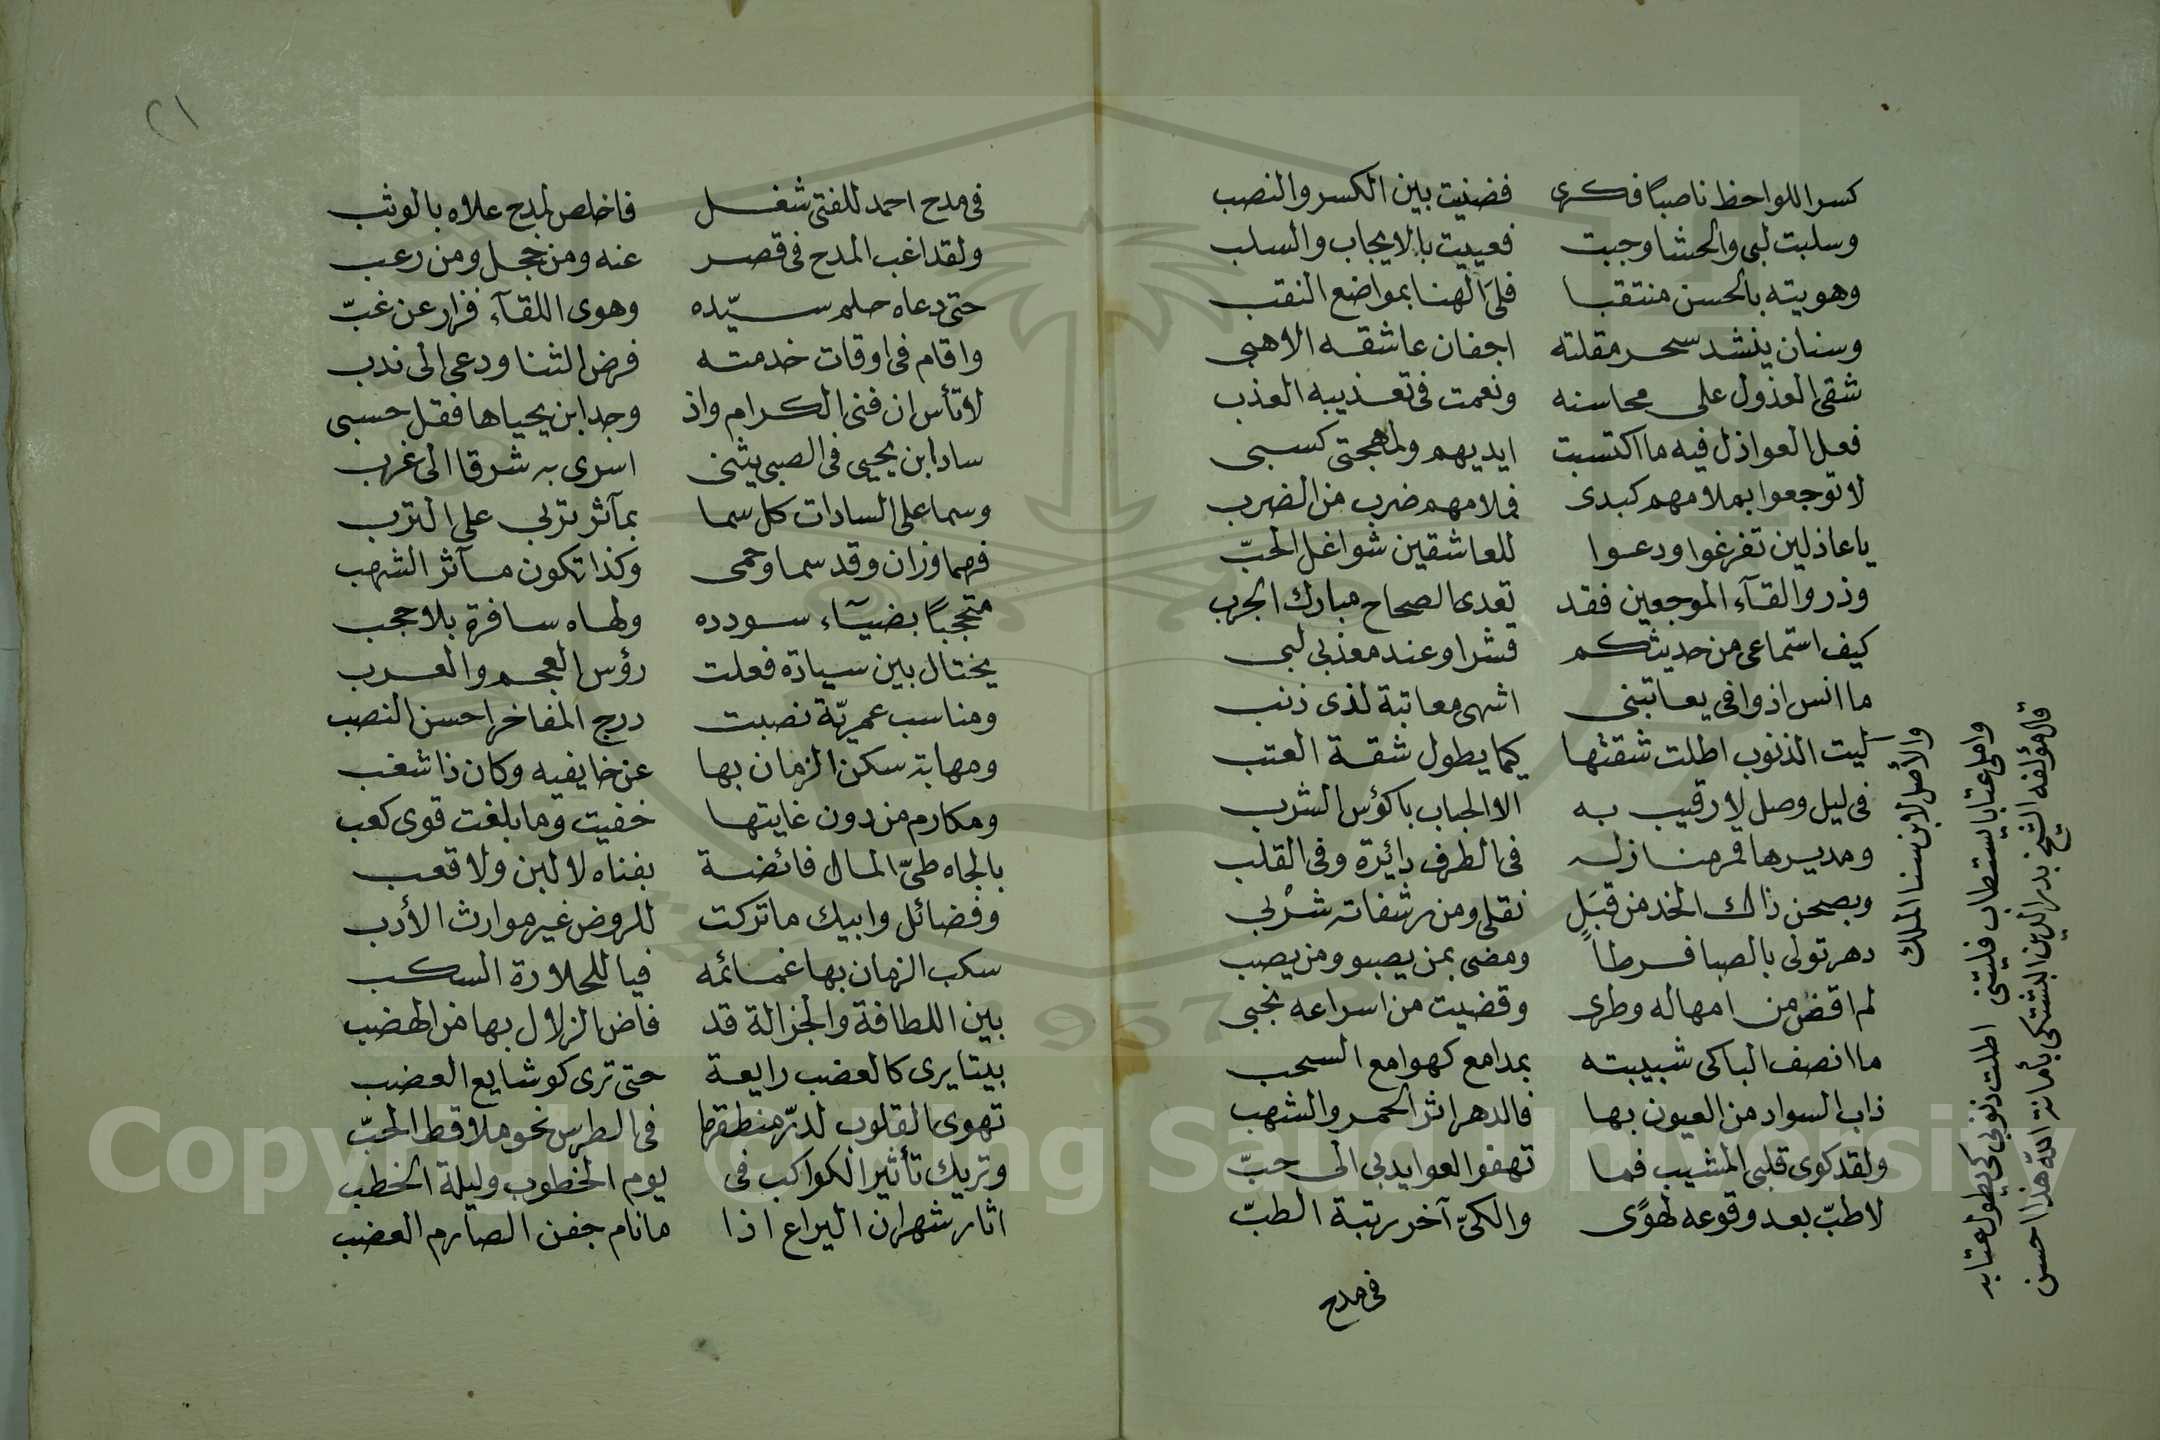 كسر اللواحظ ناصبا فكرى فضنيت بين الكسر والنصب
وسلبت لبى والحشا وجبت فعييت بالايجاب والسلب
وهويته بالحسن منتقبا فلى الهنا بمواضع النقب
وسنان ينشد سحر مقلته اجفان عاشقه الا هبى
شقى العذول على محاسنه ونعمت فى تعذيبه العذب
فعل العواذل فيه ما اكتسبت ايديهم ولمهجتى كسبى
لا توجعوا بملامهم كبدى فملامهم ضرب من الضرب
يا عاذلين تفرغوا ودعوا للعاشقين شواغل الحبّ
وذروا لقآء الموجعين فقد تعدى الصحاح مبارك الجرب
كيف استماعى من حديثكم قشرا وعند معذبى لبى
ما انس اذ وافى يعاتبنى اشهى معاتبة لذى ذنب
ليت الذنوب اطلت شقتها كيما يطول شقة العتب
فى ليل وصل لا رقيب به الا الحباب باكؤس الشرب
ومديرها قمر منازله فى الطرف دائرة وفى القلب
وبصحن ذاك الخد من قبَل نقلى ومن رشفاته شرْبى
دهر تولى بالصبا فرطاً ومضى بمن يصبو ومن يصب
لم اقض من امهاله وطرى وقضيت من اسراعه نحبى
ما انصف الباكى شبيبته بمدامع كهوامع السحب
ذاب السواد من العيون بها فالدهر اثر الحمر والشهب
ولقد كوى قلبى المشيب فما تهفوا العوايد بى الى حبّ
لا طبّ بعد وقوعه لهوًى والكىّ آخر رتبة الطبّ
فى مدح
والأصل لابن سنا الملك
واملى عتابا يستطاب فليتنى اطلت ذنوبى كى يطول عتابه
قال مؤلفه الشيخ بدر الدين البشتكى بأمانة الله هذا احسن
٢١
فى مدح احمد للفتى شغل فاخلص لمدح علاه بالوثب
ولقد اغب المدح فى قصر عنه ومن خجل ومن رعب
حتى دعاه حلم سيّده وهوى اللقآء فزار عن غبّ
واقام فى اوقات خدمته فرض الثنا ودعى الى ندب
لا تأس ان فنى الكرام واذ وجد ابن يحياها فقل حسبى
ساد ابن يحيى فى الصبى بثنى اسرى به شرقا الى غرب
وسما على السادات كل سما بمآثر تربى على الترب
فهما وزان وقد سما وحمى وكذا تكون مآثر الشهب
متحجبًا بضيآء سودده ولهاه سافرة بلا حجب
يختال بين سيادة فعلت رؤس العجم والعرب
ومناسب عمريّة نصبت درج المفاخر احسن النصب
ومهابة سكن الزمان بها عن خايفيه وكان ذا شغب
ومكارم من دون غايتها خفيت وما بلغت قوى كعب
بالجاه طىّ المال فائضة بفناه لا لبن ولا قعب
وفضائل وابيك ما تركت للروض غير موارث الأدب
سكب الزمان بها غمائمه فيا للحلاوة السكب
بين اللطافة والجزالة قد فاض الزلال بها من الهضب
بيتا يرى كالعضب رايعة حتى ترى كوشايع العضب
تهوى القلوب لدرّ منطقها فى الطرس نحو ملاقط الحبّ
وتريك تأثير الكواكب فى يوم الخطوب وليلة الخطب
اثار شهران اليراع اذا ما نام جفن الصارم العضب
Copyright © King Saud University
1957